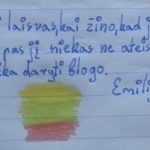 laisvas, kai žino, kad j
pas jį niekas ne ateis
ka daryti blogo.
Emili